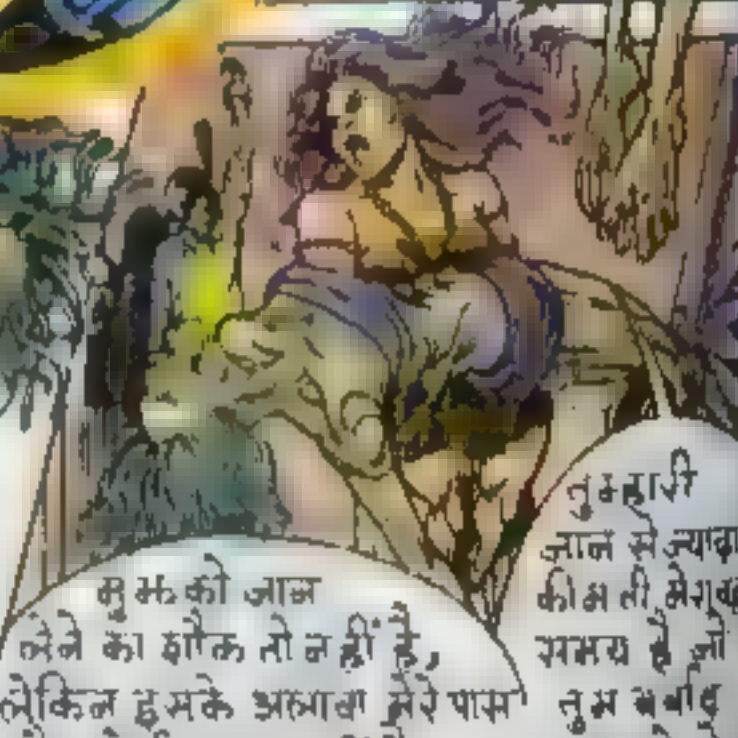 मुझको जान
लेने का शौक तो नहीं है,
लेकिन इसके अलावा मेरे पास
तुम्हारी
जान से ज्यादा
कीमती मेरा
समय है जो
तुम बर्बाद